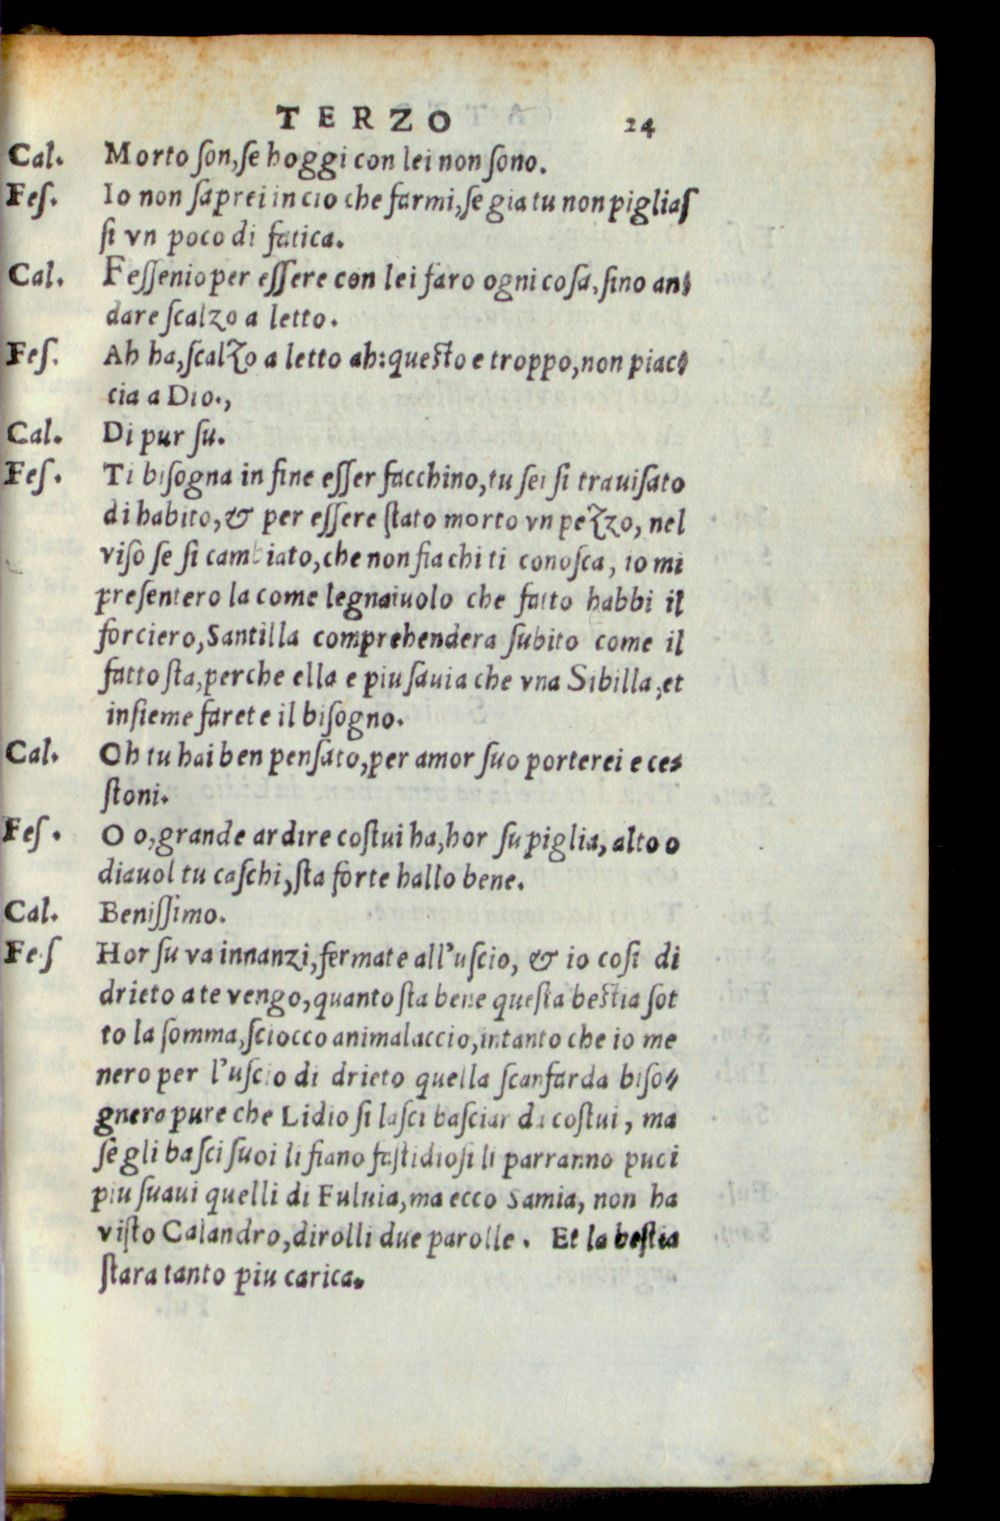 TERZO 24
Cal. Morto ſon, ſe hoggi con lei non ſono.
Feſ. Io non ſaprei in cio che farmi, ſe gia tu non pigliaſ
ſi vn poco di fatica.
Cal. Feſſenio per eſſere con lei faro ogni coſa, ſino an⸗
dare ſcalzo a letto.
Feſ. Ah ha, ſcalzo a letto ah: queſto e troppo, non piac⸗
cia a Dio.,
Cal. Di pur ſu.
Feſ. Ti biſogna in fine eſſer facchino, tu ſei ſi trauiſato
di habito, & per eſſere ſtato morto vn pezzo, nel
viſo ſe ſi cambiato, che non fia chi ti conoſca, io mi
preſentero la come legnaiuolo che fatto habbi il
forciero, Santilla comprehendera ſubito come il
fatto ſta, perche ella e piu ſauia che vna Sibilla, et
inſieme farete il biſogno.
Cal. Oh tu hai ben penſato, per amor ſuo porterei e ce⸗
ſtoni.
Feſ. O o, grande ardire coſtui ha, hor ſu piglia, alto o
diauol tu caſchi, ſta forte hallo bene.
Cal. Beniſſimo.
Feſ Hor ſu va innanzi, fermate all'uſcio, & io coſi di
drieto a te vengo, quanto ſta bene queſta beſtia ſot
to la ſomma, ſciocco animalaccio, intanto che io me
nero per l'uſcio di drieto quella ſcanfarda biſo⸗
gnera pure che Lidio ſi laſci baſciar da coſtui, ma
ſe gli baſci ſuoi li fiano faſtidioſi li parranno puci
piu ſuaui quelli di Fuluia, ma ecco Samia, non ha
viſto Calandro, dirolli due parolle. Et la beſtia
ſtara tanto piu carica.